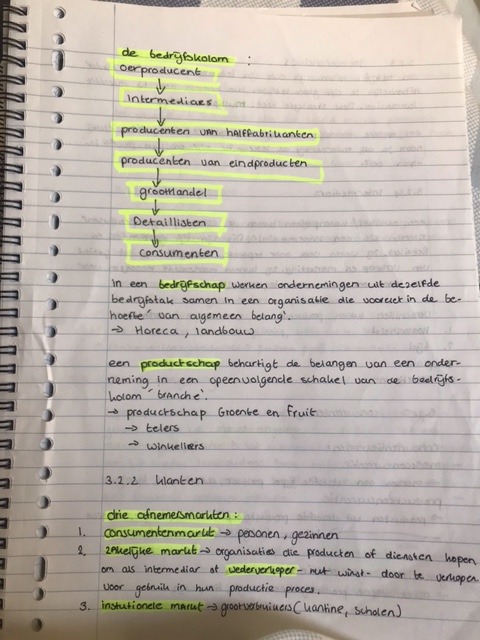 de bedrijfskolom :
oerproducent
↓
Intermediars
↓
producenten van halffabrikanten
↓
producenten van eindproducten
↓
groothandel
↓
Detaillisten
↓
consumenten
In een bedrijfschap werken ondernemingen uit dezelfde
bedrijfstak samen in een organisatie die voorziet in de be-
hoefte 'van algemeen belang'.
→ Horeca, landbouw
een productschap behartigt de belangen van een onder-
neming in een opeenvolgende schakel van de bedrijfs-
kolom 'branche'.
→ productschap Groente en Fruit
→ telers
→ winkeliers
3.2.2 klanten
drie afnemersmarkten :
1. consumentenmarkt → personen, gezinnen
2. zakelijke markt → organisaties die producten of diensten kopen
om als intermediar of wederverkoper - met winst - door te verkopen
voor gebruik in hun productie proces.
3. instutionele markt → grootverbruikers (kantine, scholen)